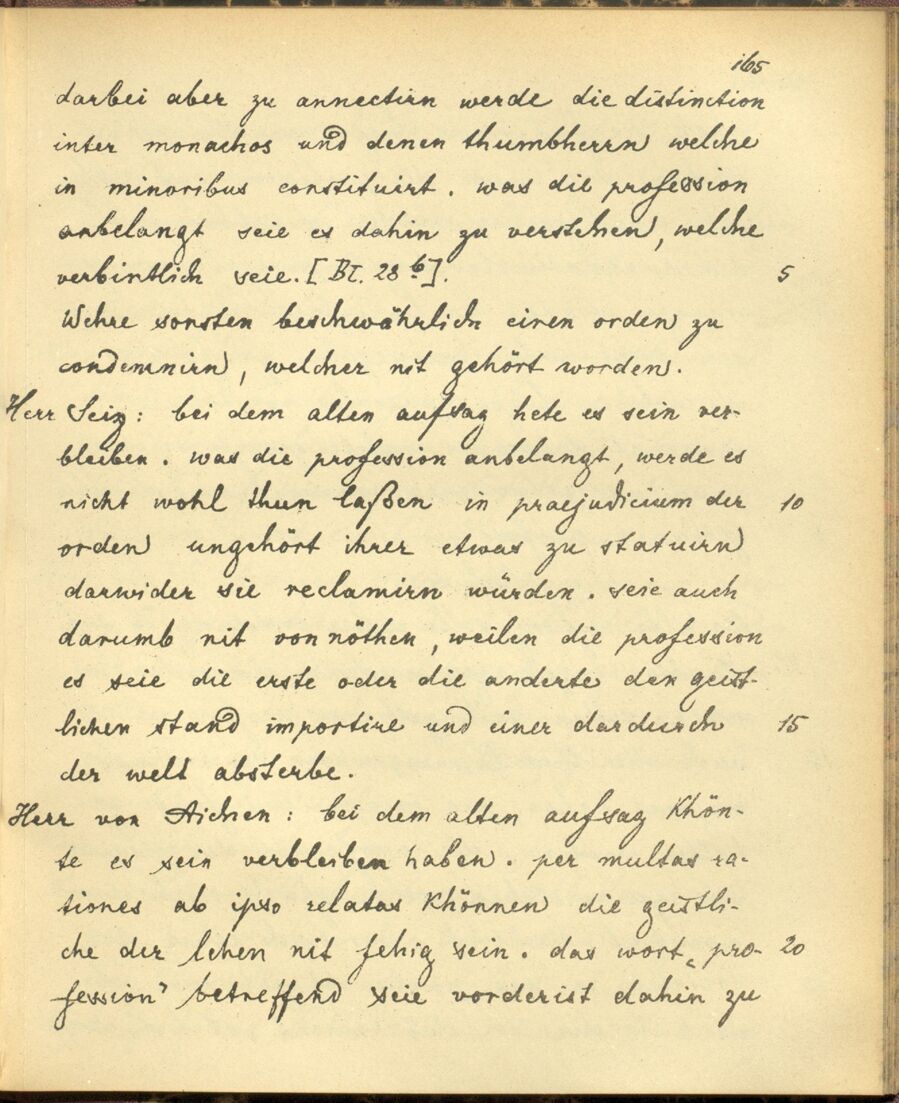 165
darbei aber zu annectirn werde die distinction
inter monachos und denen thumbherrn welche
in minoribus constituirt. was die profession
anbelangt seie es dahin zu verstehen, welche
verbintlich seie. [Bl. 28 b]. 5
Wehre sonsten beschwährlich einen orden zu
condemnirn, welcher nit gehört worden.
Herr Seiz: bei dem alten aufsag hete es sein ver-
bleiben. was die profession anbelangt, werde es
nicht wohl thun laßen in praejudicium der 10
orden ungehört ihrer etwas zu statuirn
darwider sie reclamirn würden. seie auch
darumb nit von nöthen, weilen die profession
es seie die erste oder die anderte den geist-
lichen stand importire und einer dardurch 15
der welt absterbe.
Herr von Aichen: bei dem alten aufsag khön-
te es sein verbleiben haben. per multas ra-
tiones ab ipso relatas khönnen die geistli-
che der lehen nit fehig sein. das wort „pro- 20
fession" betreffend seie vorderist dahin zu